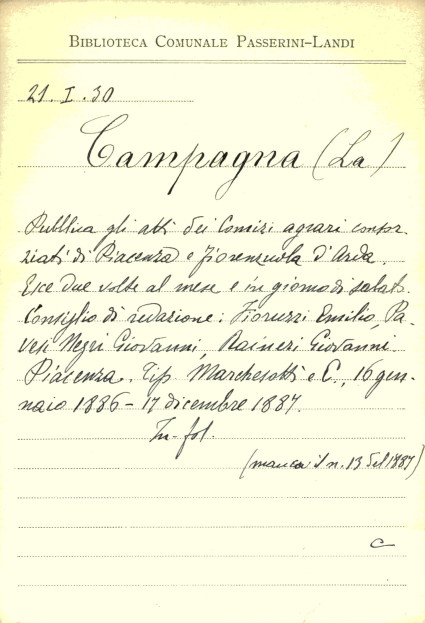 BIBLIOTECA COMUNALE PASSERINI-LANDI
21.I.30
Campagna (La)
Pubblica gli atti dei Comizi agrari consor-
ziati di Piacenza e Fiorenzuola d'Arda.
Esce due volte al mese e in giorno di sabato.
Consiglio di redazione: Fioruzzi Emilio, Pa-
vesi Negri Giovanni, Raineri Giovanni.
Piacenza. Tip. Marchesotti e C., 16 gen-
naio 1886 - 17 dicembre 1887.
In-fol.
(manca il n. 13 del 1887)
C